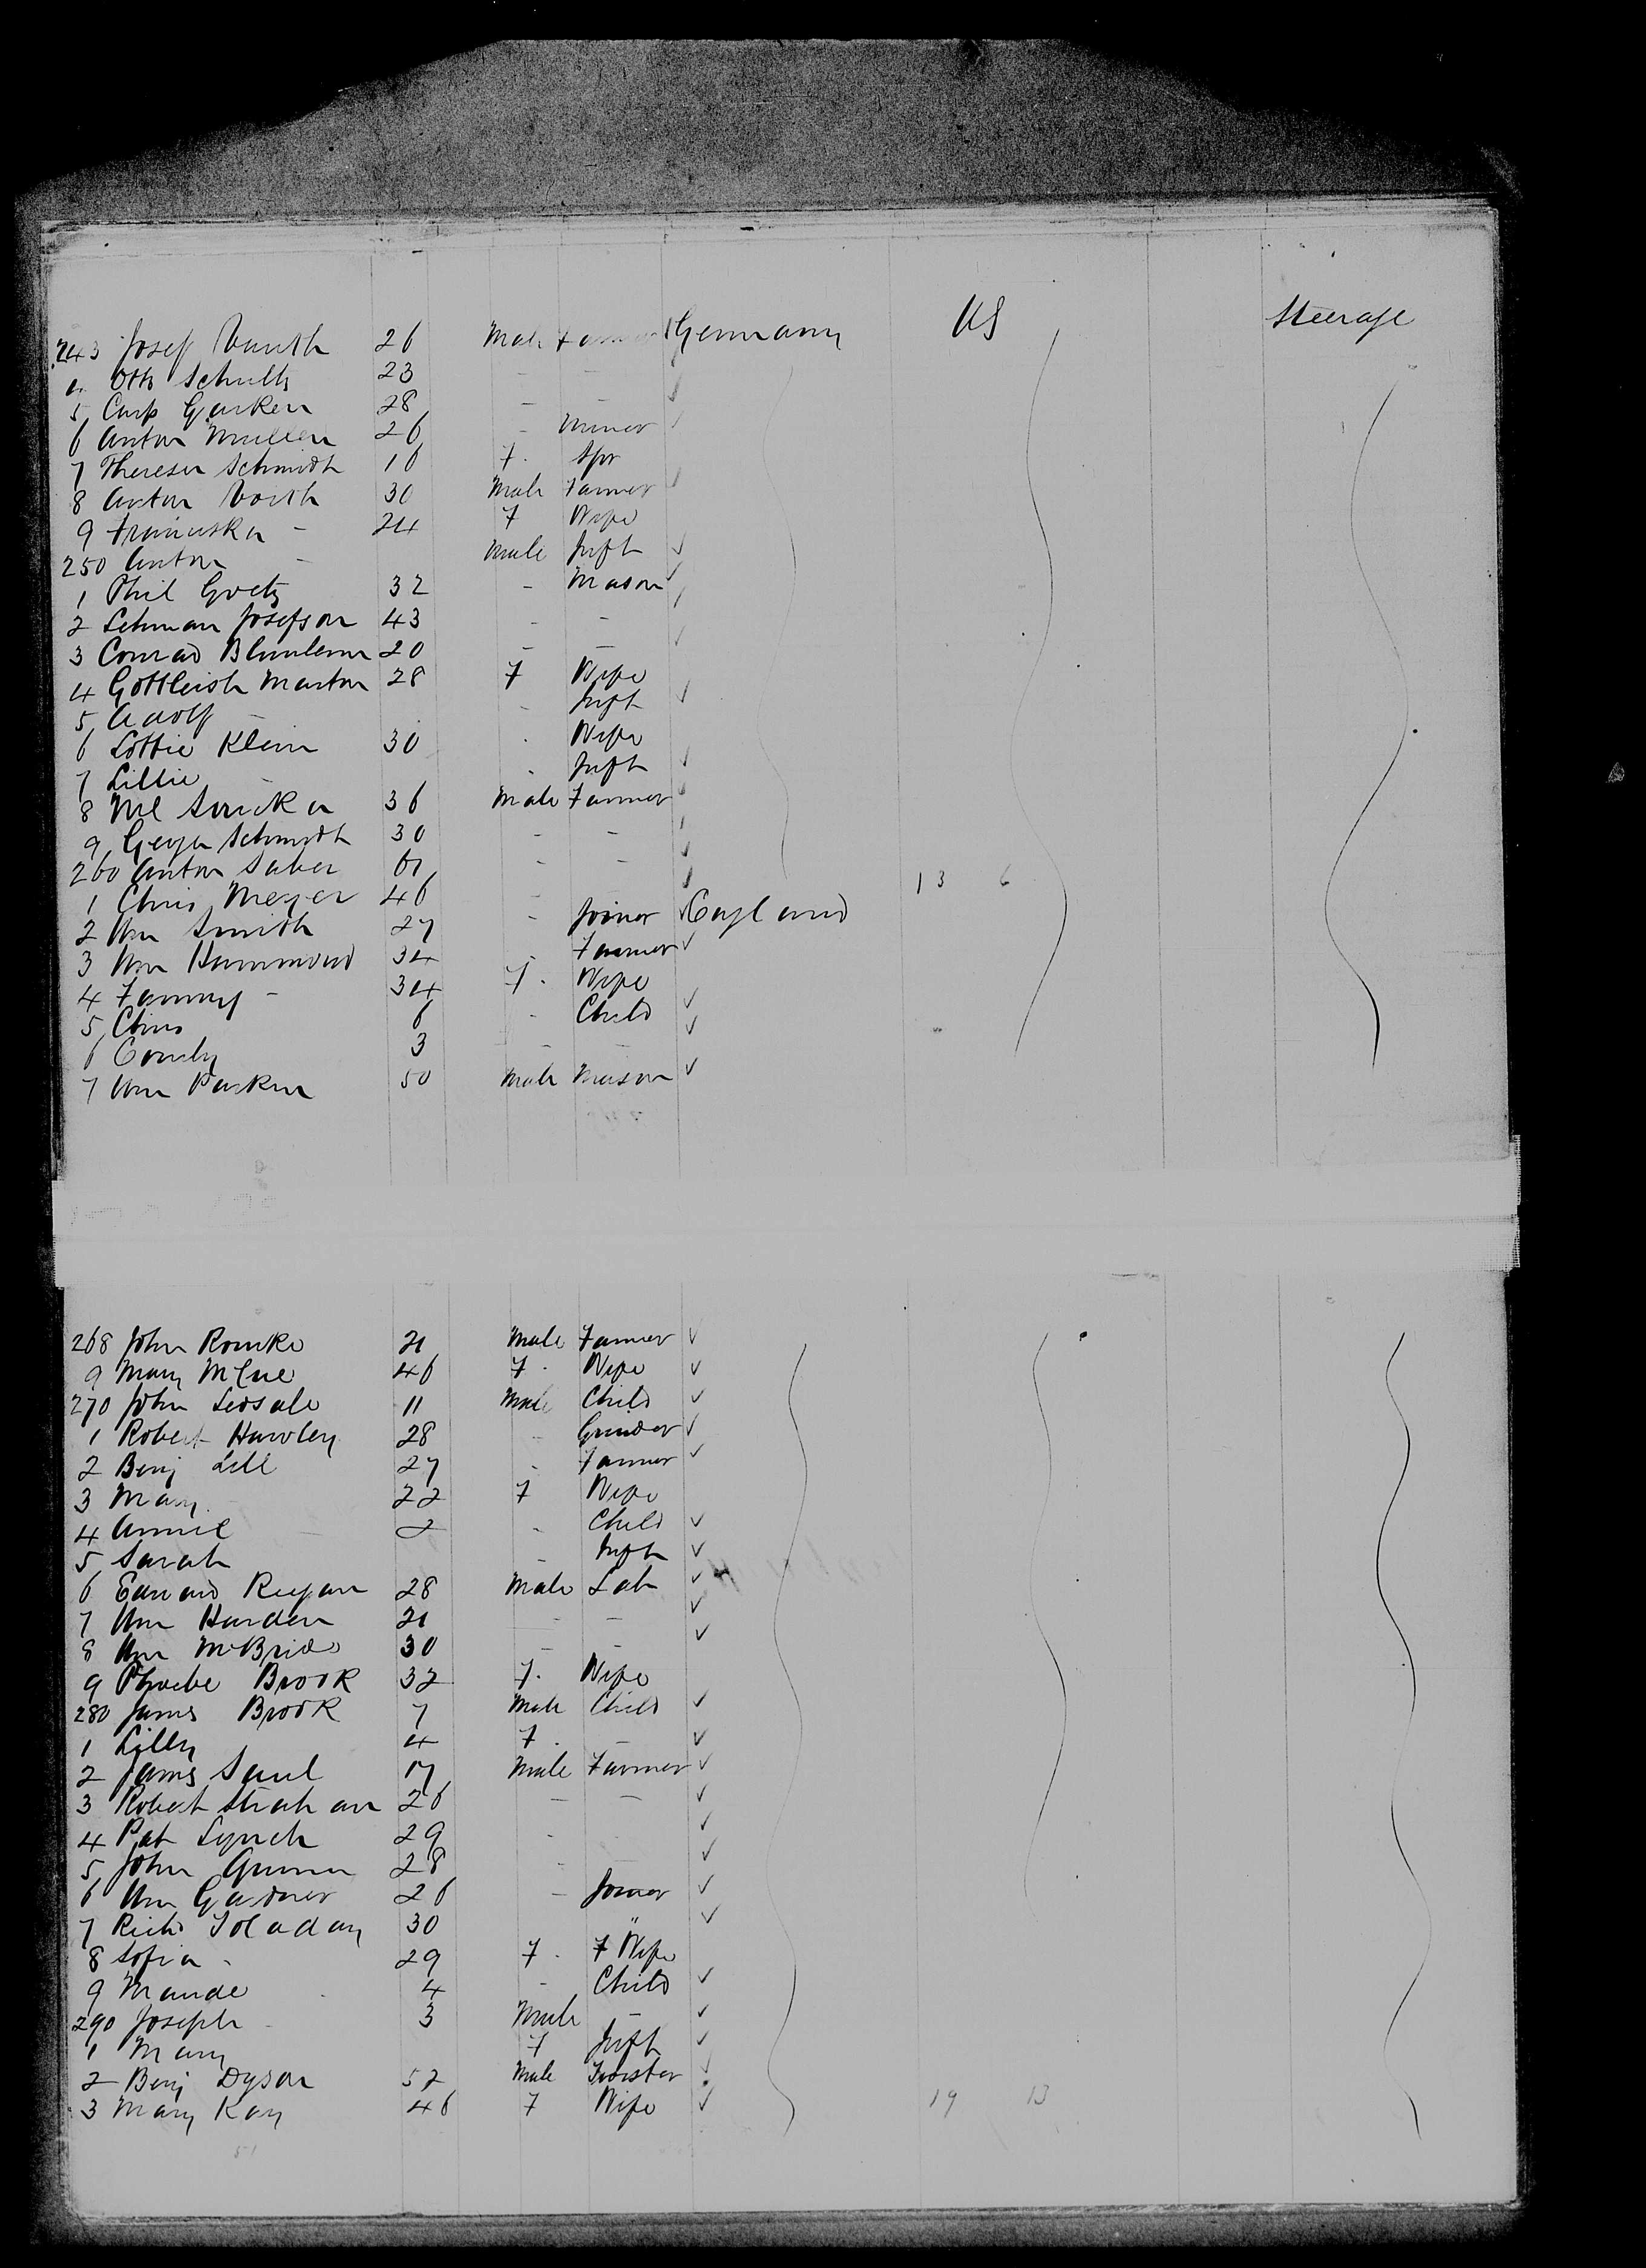 243 Josef Vauth 26 Male Farmer Germany US Steerage
4 Otto Schultz 23 - -
5 Carp Garken 28 - -
6 Anton Mullen 26 - Miner
7 Theresa Schmidt 16 F. Spr
8 Anton Voith 30 Male Farmer
9 Franziska - 24 F Wife
250 Anton - Male Inft
1 Phil Goetz 32 - Mason
2 Lehman Josefson 43 - -
3 Conrad 20 - -
4 Marton 28 F Wife
5 Adolf - - Inft
6 Lottie Klein 30 - Wife
7 Lillie - - Inft
8 36 Male Farmer
9 Schmidt 30 - -
260 Anton 61 - -
1 Chris Meyer 46 -
2 Wm Smith 27 - Joiner England
3 Wm Hammond 34 - Farmer
4 Fanny - 34 F. Wife
5 Chris 6 - Child
6 Emily 3 - -
7 Wm Parkin 50 Male Mason
13 6
268 John Rourke 21 Male Farmer
9 Mary McCue 46 F. Wife
270 John 11 Male Child
1 Robert Hawley 28 - Grinder
2 Benj Lill 27 - Farmer
3 Mary 22 F Wife
4 Annie - 2 - Child
5 Sarah - Inft
6 Edward Regan 28 Male Lab
7 Wm Harden 21 - -
8 Wm McBride 30 - -
9 Phoebe Brook 32 F. Wife
280 James Brook 7 Male Child
1 Lilly 4 F. -
2 James Saul 17 Male Farmer
3 Robert Strahan 26 - -
4 Pat Lynch 29 - -
5 John 28 - -
6 Wm Gardner 26 - Joiner
7 Richd 30 "
8 Sofia - 29 F. F Wife
9 Maude - 4 - Child
290 Joseph - 3 Male -
1 Mary F Inft
2 Benj Dyson 52 Male Twister
3 Mary Kay 46 F Wife 19 13
51